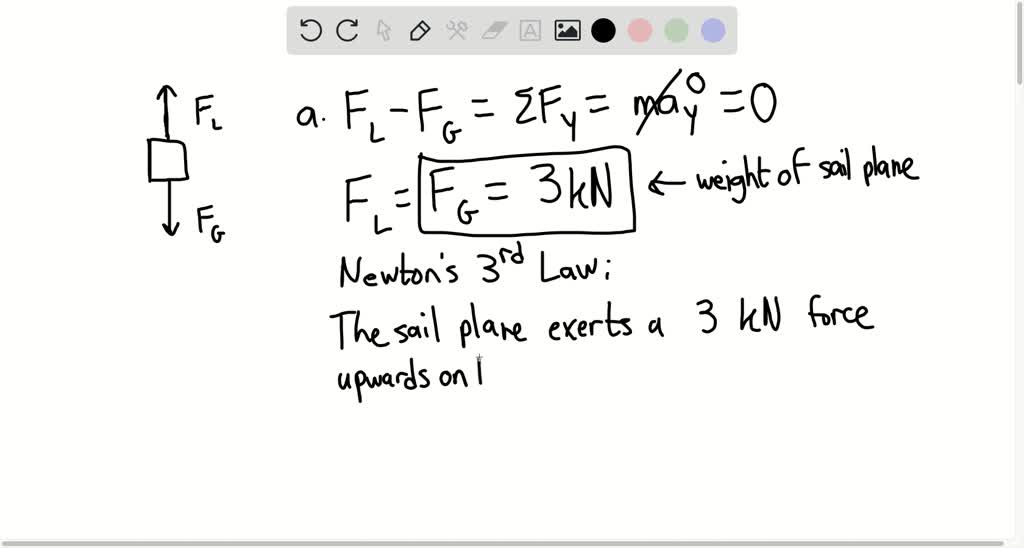 F_L
F_G
a. F_L - F_G = ΣF_y = ma_y^0 = 0
F_L = F_G = 3 kN ← weight of sail plane
Newton's 3rd Law:
The sail plane exerts a 3 kN force
upwards on